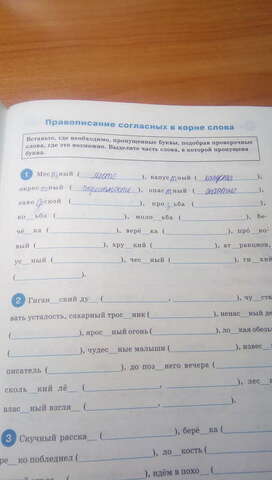 Правописание согласных в корне слова
Вставьте, где необходимо, пропущенные буквы, подобрав проверочные
слова, где это возможно. Выделите часть слова, в которой пропущена
буква.
1 Мес т ный ( место ), капус т ный ( капуста ),
окрес т ный ( окрестности ), опас ный ( ),
ской ( ), про з ба ( ),
ко__ьба ( ), моло__ба ( ), бе-
чё__ка ( ), верё__ка ( ), про__но-
вый ( ), хру__кий ( ), ат__ракцион,
ус__ный ( ), чес__ный ( ), ги__кий
( ).
2 Гиган__ский ду__ ( , ), чу__ств-
вать усталость, сахарный трос__ник ( ), ненас__ный де
( ), ярос__ный огонь ( ), ло__кая обезь
( ), чудес__ные малыши ( ), извес__н
писатель ( ), до поз__него вечера (
сколь__кий лё__ ( , ), лес__н
влас__ный взгля__ ( ,
3 Скучный расска__ ( ), берё__ка (
ре__ко побледнел ( ), ло__кость (
( ), идём в похо__ (